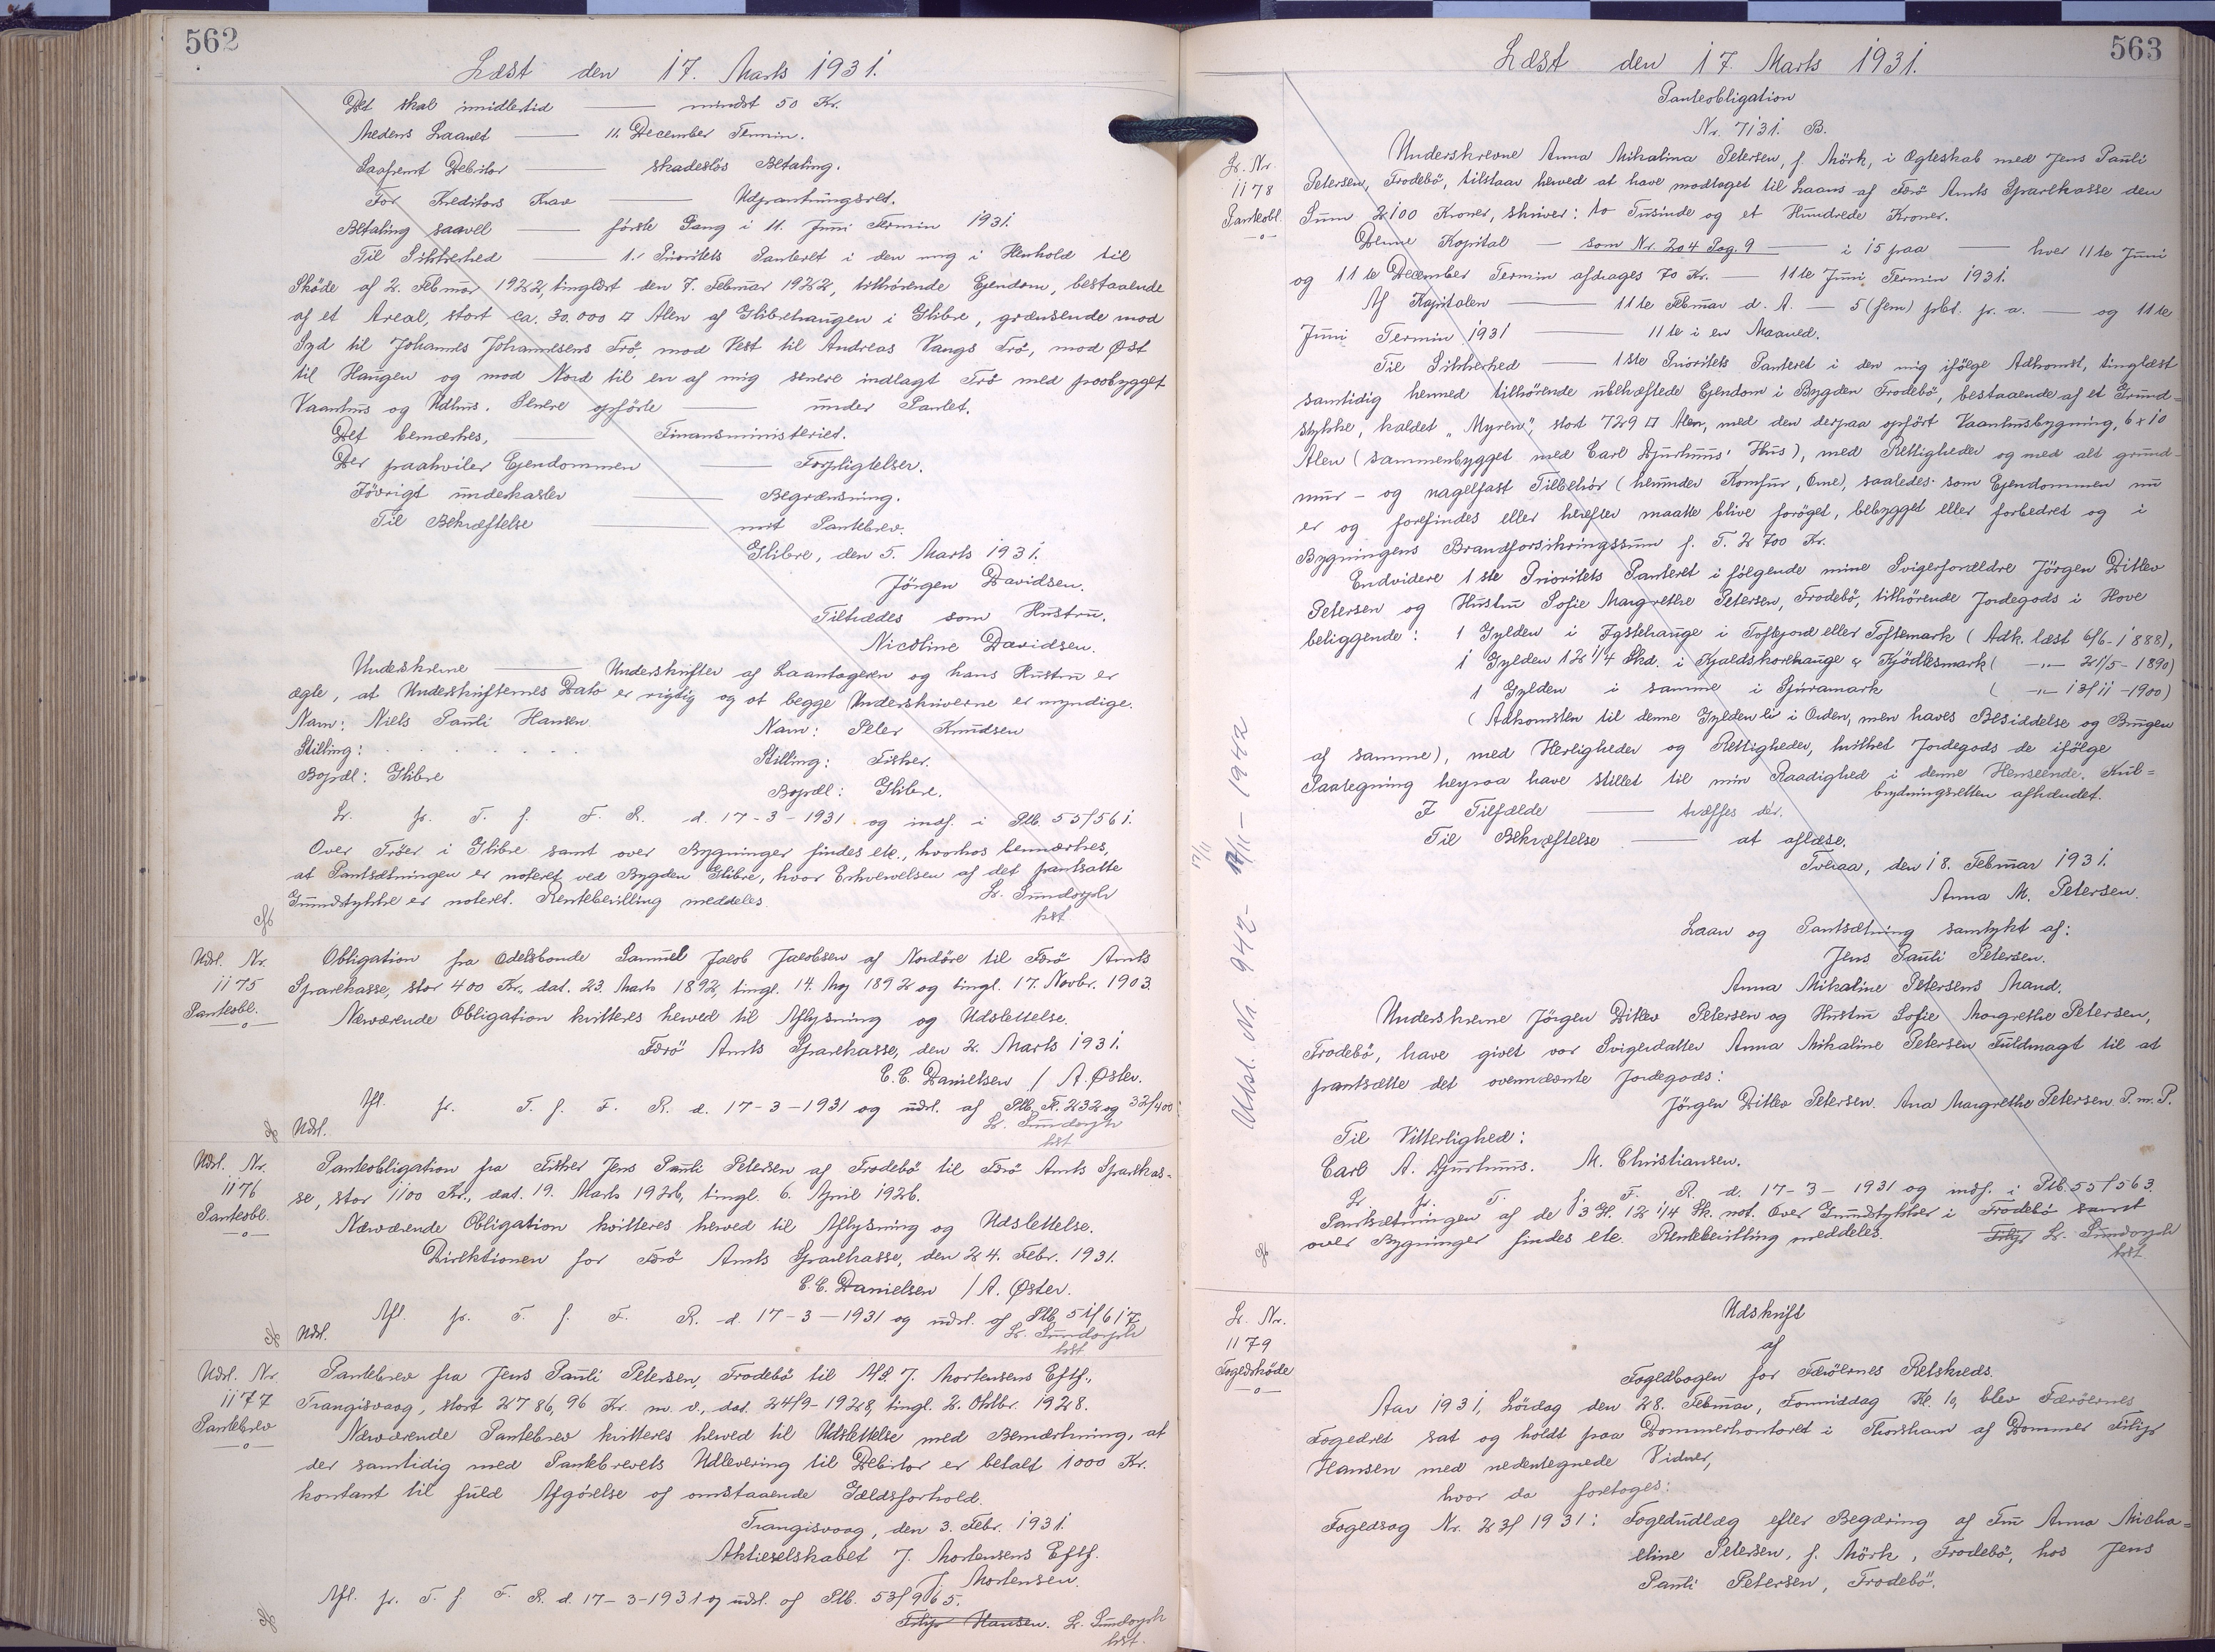 562
Læst den 17. Marts 1931.
Det skal imidlertid —— mindst 50 Kr.
Medens Laanet —— 11. December Termin.
Saafremt Debitor —— skadeslös Betaling.
For Kreditors Krav —— Udpantningsret.
Betaling saavel —— förste Gang i 11. Juni Termin 1931.
Til Sikkerhed —— 1. Prioritets Panteret i den mig i Henhold til
Sköde af 2. Februar 1922, tinglæst den 7. Februar 1922, tilhörende Ejendom, bestaaende
af et Areal, stort ca. 30.000 □ Alen af Glibrehaugen i Glibre, grænsende mod
Syd til Johannes Johannesens Trö, mod Vest til Andreas Vangs Trö, mod Øst
til Haugen og mod Nord til en af mig senere indlagt Trö med paabygget
Vaanhus og Udhus. Senere opförte —— under Pantet.
Det bemærkes, —— Finansministeriet.
Der paahviler Ejendommen —— Forpligtelser.
Iövrigt underkaster —— Begrænsning.
Til Bekræftelse —— mit Pantebrev.
Glibre, den 5. Marts 1931.
Jörgen Davidsen.
Tiltrædes som Hustru.
Nicoline Davidsen.
Underskrevne —— Underskrifter af Laantageren og hans Hustru er
ægte, at Underskrifternes Dato er rigtig og at begge Underskriverne er myndige.
Navn: Niels Pauli Hansen. Navn: Peter Knudsen
Stilling: . . . . . . Stilling: Fisker.
Bopæl: Glibre Bopæl: Glibre.
L. pr. T. f. F. R. d. 17-3-1931 og indf. i Ptb. 55/561.
Over Tröer i Glibre samt over Bygninger findes etc., hvorhos bemærkes,
at Pantsætningen er noteret ved Bygden Glibre, hvor Erhvervelsen af det pantsatte
Grundstykke er noteret. Rentebevilling meddeles. L. Sundorph
kst.
Udsl. Nr. 1175 Panteobl.
Obligation fra Odelsbonde Samuel Jacob Jacobsen af Nordöre til Færö Amts
Sparekasse, stor 400 Kr., dat. 23. Marts 1892, tingl. 14. Maj 1892 og tingl. 17. Novbr. 1903.
Nærværende Obligation kvitteres herved til Aflysning og Udslettelse.
Færö Amts Sparekasse, den 2. Marts 1931.
C.C. Danielsen / A. Øster.
Afl. pr. T. f. F. R. d. 17-3-1931 og udsl. af Ptb. Fl. 232 og 32/400.
Udsl. L. Sundorph
kst
Udsl. Nr. 1176 Panteobl.
Panteobligation fra Fisker Jens Pauli Petersen af Frodebö til Færö Amts Sparekas=
se, stor 1100 Kr., dat. 19. Marts 1926, tingl. 6. April 1926.
Nærværende Obligation kvitteres herved til Aflysning og Udslettelse.
Direktionen for Færö Amts Sparekasse, den 24. Febr. 1931.
C.C. Danielsen / A. Øster.
Afl. pr. T. f. F. R. d. 17-3-1931 og udsl. af Ptb. 51/617
Udsl. L. Sundorph
kst.
Udsl. Nr. 1177 Pantebrev
Pantebrev fra Jens Pauli Petersen, Frodebö til A/S J. Mortensens Eftf.,
Trangisvaag, stort 2786,96 Kr. m. v., dat. 24/9-1928, tingl. 2. Oktbr. 1928.
Nærværende Pantebrev kvitteres herved til Udslettelse med Bemærkning, at
der samtidig med Pantebrevets Udlevering til Debitor er betalt 1000 Kr.
kontant til fuld Afgörelse af omstaaende Gældsforhold.
Trangisvaag, den 3. Febr. 1931.
Aktieselskabet J. Mortensens Eftf.
J. Mortensen.
Afl. pr. T. f. F. R. d. 17-3-1931 og udsl. af Ptb. 53/965.
Filip Hansen. L. Sundorph
kst.
563
Læst den 17. Marts 1931.
Panteobligation
Nr. 7131. B.
L. Nr. 1178 Panteobl.
Underskrevne Anna Mikalina Petersen, f. Mörk, i Ægteskab med Jens Pauli
Petersen, Frodebö, tilstaar herved at have modtaget til Laans af Færö Amts Sparekasse den
Sum 2100 Kroner, skriver: to Tusinde og et Hundrede Kroner.
Denne Kapital — som Nr. 204 Pag. 9 —— i 15 paa —— hver 11te Juni
og 11te December Termin afdrages 70 Kr. — 11te Juni Termin 1931.
Af Kapitalen —— 11te Februar d. A. — 5 (fem) pCt. pr. a. — og 11te
Juni Termin 1931 —— 11te i en Maaned.
Til Sikkerhed —— 1ste Prioritets Panteret i den mig ifölge Adkomst, tinglæst
samtidig hermed tilhörende ubehæftede Ejendom i Bygden Frodebö, bestaaende af et Grund=
stykke, kaldet "Myren", stort 729 □ Alen, med den derpaa opfört Vaanhusbygning, 6 x 10
Alen (sammenbygget med Carl Djurhuus' Hus), med Rettigheder og med alt grund-
mur- og nagelfast Tilbehör (herunder Komfur, Ovne), saaledes som Ejendommen nu
er og forefindes eller herefter maatte blive foröget, bebygget eller forbedret og i
Bygningens Brandforsikringssum p. T. 2700 Kr.
Endvidere 1ste Prioritets Panteret i fölgende mine Svigerforældre Jörgen Ditlev
Petersen og Hustru Sofie Margrethe Petersen, Frodebö, tilhörende Jordegods i Hove
beliggende: 1 Gylden i Igstehauge i Toftejord eller Toftemark (Adk. læst 6/6-1888),
1 Gylden 12 1/4 Skd. i Kjaldskorehauge & Kjödlesmark ( -„- 21/5-1890)
1 Gylden i samme i Sjúramark ( -„- 13/11-1900)
(Adkomsten til denne Gylden ei i Orden, men haves Besiddelse og Brugen
af samme), med Herligheder og Rettigheder, hvilket Jordegods de ifölge
Paategning herpaa have stillet til min Raadighed i denne Henseende. Kul=
brydningsretten afhændet.
I Tilfælde —— træffes dér.
Til Bekræftelse —— at aflæse.
Tveraa, den 18. Februar 1931.
Anna M. Petersen.
Laan og Pantsætning samtykt af:
Jens Pauli Petersen.
Anna Mikaline Petersens Mand.
Underskrevne Jörgen Ditlev Petersen og Hustru Sofie Margrethe Petersen,
Frodebö, have givet vor Svigerdatter Anna Mikaline Petersen Fuldmagt til at
pantsætte det ovennævnte Jordegods:
Jörgen Ditlev Petersen. Ana Margrethe Petersen P. m. P.
Til Vitterlighed:
Carl A. Djurhuus. M. Christiansen.
L. pr. T. f. F. R. d. 17-3-1931 og indf. i Ptb. 55/563.
Pantsætningen af de 3 Gl. 12 1/4 Sk. not. Over Grundstykker i Frodebö samt
over Bygninger findes etc. Rentebevilling meddeles. Filip L. Sundorph
kst.
Udsl. Nr 942 - 17/11 - 1942
17/11
L. Nr. 1179 Fogedsköde
Udskrift
af
Fogedbogen for Færöernes Retskreds.
Aar 1931, Lördag den 28. Februar, Formiddag Kl. 10, blev Færöernes
Fogedret sat og holdt paa Dommerkontoret i Thorshavn af Dommer Filip
Hansen med nedentegnede Vidner,
hvor da foretoges:
Fogedsag Nr. 23/1931: Fogedudlæg efter Begæring af Fru Anna Micha=
eline Petersen, f. Mörk, Frodebö, hos Jens
Pauli Petersen, Frodebö.